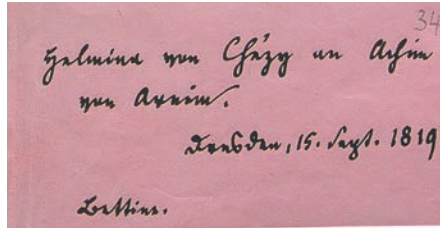 34
Helmina von Chézy an Achim
von Arnim.
Dresden, 15. Sept. 1819
Bettine.